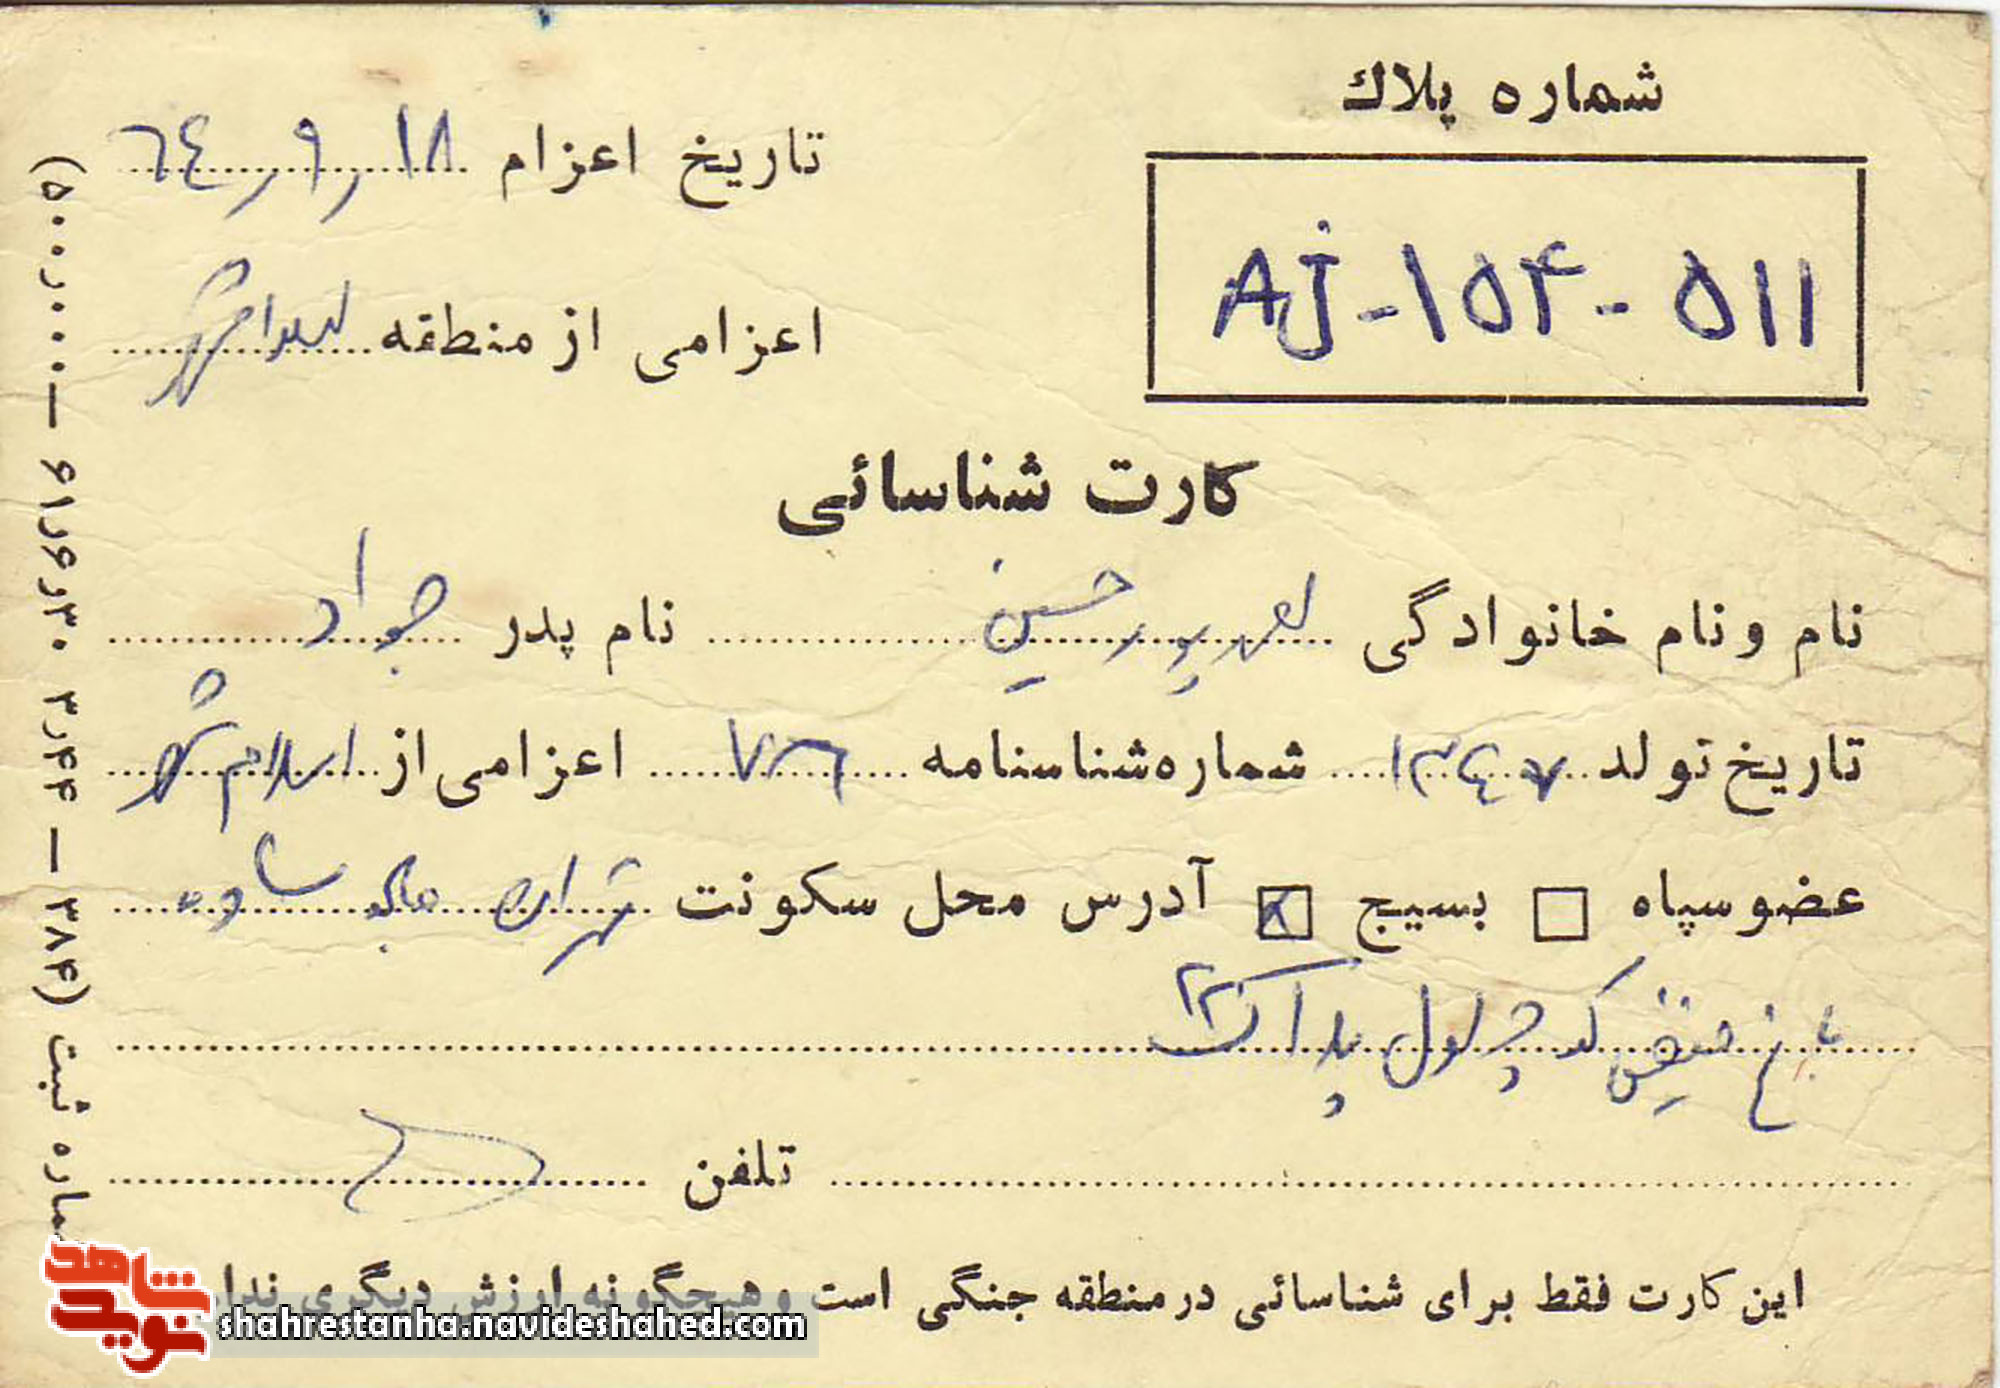 شماره پلاك
AJ-۱۵۴-۵۱۱
تاریخ اعزام ۱۸ ر ۹ ر ٦٤
اعزامی از منطقه
کارت شناسائی
نام و نام خانوادگی پور حسین نام پدر جواد
تاریخ تولد ۱۳٤۷ شماره شناسنامه ۷۸٦ اعزامی از اسلام شهر
عضو سپاه بسیج آدرس محل سکونت تهران جاده ساوه
باغ فیض اول پلاک
تلفن
این کارت فقط برای شناسائی در منطقه جنگی است و هیچگونه ارزش دیگری ندارد
شماره ثبت (۳۸۴ — ۳٫۴۴ ۳۰ر۶ر۶۱ — ۵۰۰ر۰۰۰)
شاهد
نوید
shahrestanha.navideshahed.com